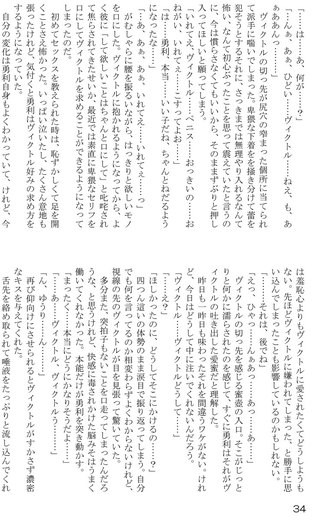 「……は……あ、何が……？」
「…んぁ、あぁ、ひどい……ヴィクトル……ねえ、も、あぁああんっ……」
ヴィクトルの切っ先が尻穴の窄まった個所に当てられて派手に喘いでしまった。卑猥な下着をを掻き分けて蕾を犯そうとするそれに、さっきまでは無理やり入れるなんて怖い、なんて初心ぶったことを思って震えていたと言うのに、今は慣らさなくてもいいから、そのまますずぶりと押し入ってほしいと願ってしまう。
「いれてぇ、ヴィクトル……ペニス……おっきいの……おねがい、いれてぇ……こすってよお……」
「は……勇利、本当に……いい子だね、ちゃんとねだるようになったな……」
「…あ……あぁ……いれてぇ……いれてぇっ……」
がむしゃらに腰を振るいながら、はっきりと欲しいモノを口にした。ヴィクトルに抱かれるようになってから、よく彼に「して欲しいことはちゃんと口にして」と叱咤されて焦らされてきたせいか、最近では素直に卑猥なセリフを口にしてヴィクトルを求めることができるようになってしまったのだ。
初めてセックスを教えられた時は、恥ずかしくて足を開くことさえ怖かった。いっぱい泣いたし、たくさん意地も張ったけれど、気付くと勇利はヴィクトル好みの求め方をするようになっていた。
自分の変化は勇利自身もよくわかっていて、けれど、今
は羞恥心よりもヴィクトルに愛されたくてどうしようもない。先ほどヴィクトルに嫌われてしまった、と勝手に思い込んでしまったことも影響しているのかもしれない。
「……それは、後でね」
「えっ、ひゃっ……んぁあっ……あっ……」
ヴィクトルの切っ先を感じる蜜壺の入り口。そこがじっとりと何かに濡らされたのを感じて、すぐに勇利はそれがヴィクトルの吐き出した愛蜜だと理解した。
昨日も一昨日も味わったそれを間違うワケがない。けれど、今日はどうして中に注いでくれないんだろう。
「ヴィクトル……ヴィクトルどうして……」
「……え？」
「ほしかったのに、どうして、そこにかけるの……？」
四つん這いの体勢のまま涙目で振り返ってしまう。自分でも何を言ってるのか相変わらずよくわからないけれど、視線の先のヴィクトルが目を見張って驚いていた。
多分また、突拍子もないことを口走ってしまったんだろうな、と思うけれど、快感に毒されかけた脳みそはうまく働いてくれなかった。本能だけが勇利を突き動かす。
「まったく……本当にどうにかなりそうだよ……」
「……あ……ヴィクトル、ヴィクトルぅ……」
「んっ、ゆうり……」
再び仰向けにさせられるとヴィクトルがすかさず濃密なキスを与えてくれた。
舌先を絡め取られて唾液をたっぷりと流し込んでくれ
34